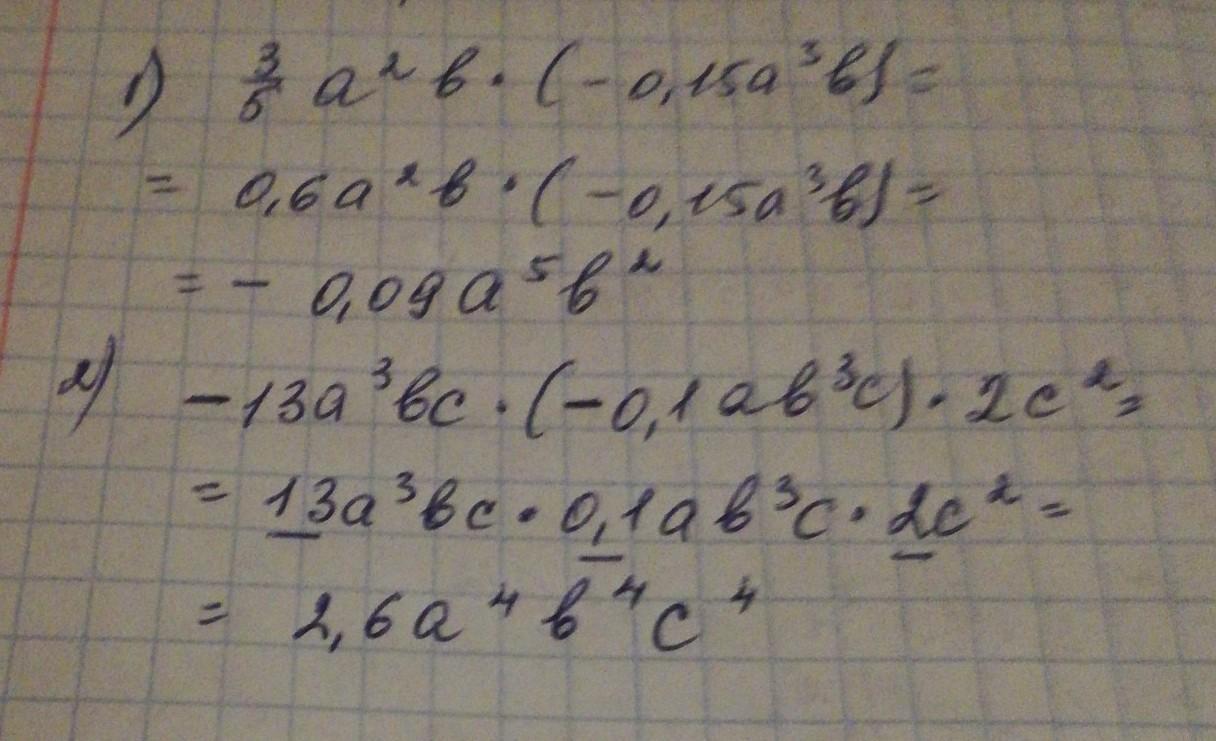 1) 3/5 a² b · (-0,15a³b) =
= 0,6a² b · (-0,15a³b) =
= - 0,09a⁵b²
2) -13a³bc · (-0,1ab³c) · 2c² =
= 13a³bc · 0,1ab³c · 2c² =
= 2,6a⁴b⁴c⁴